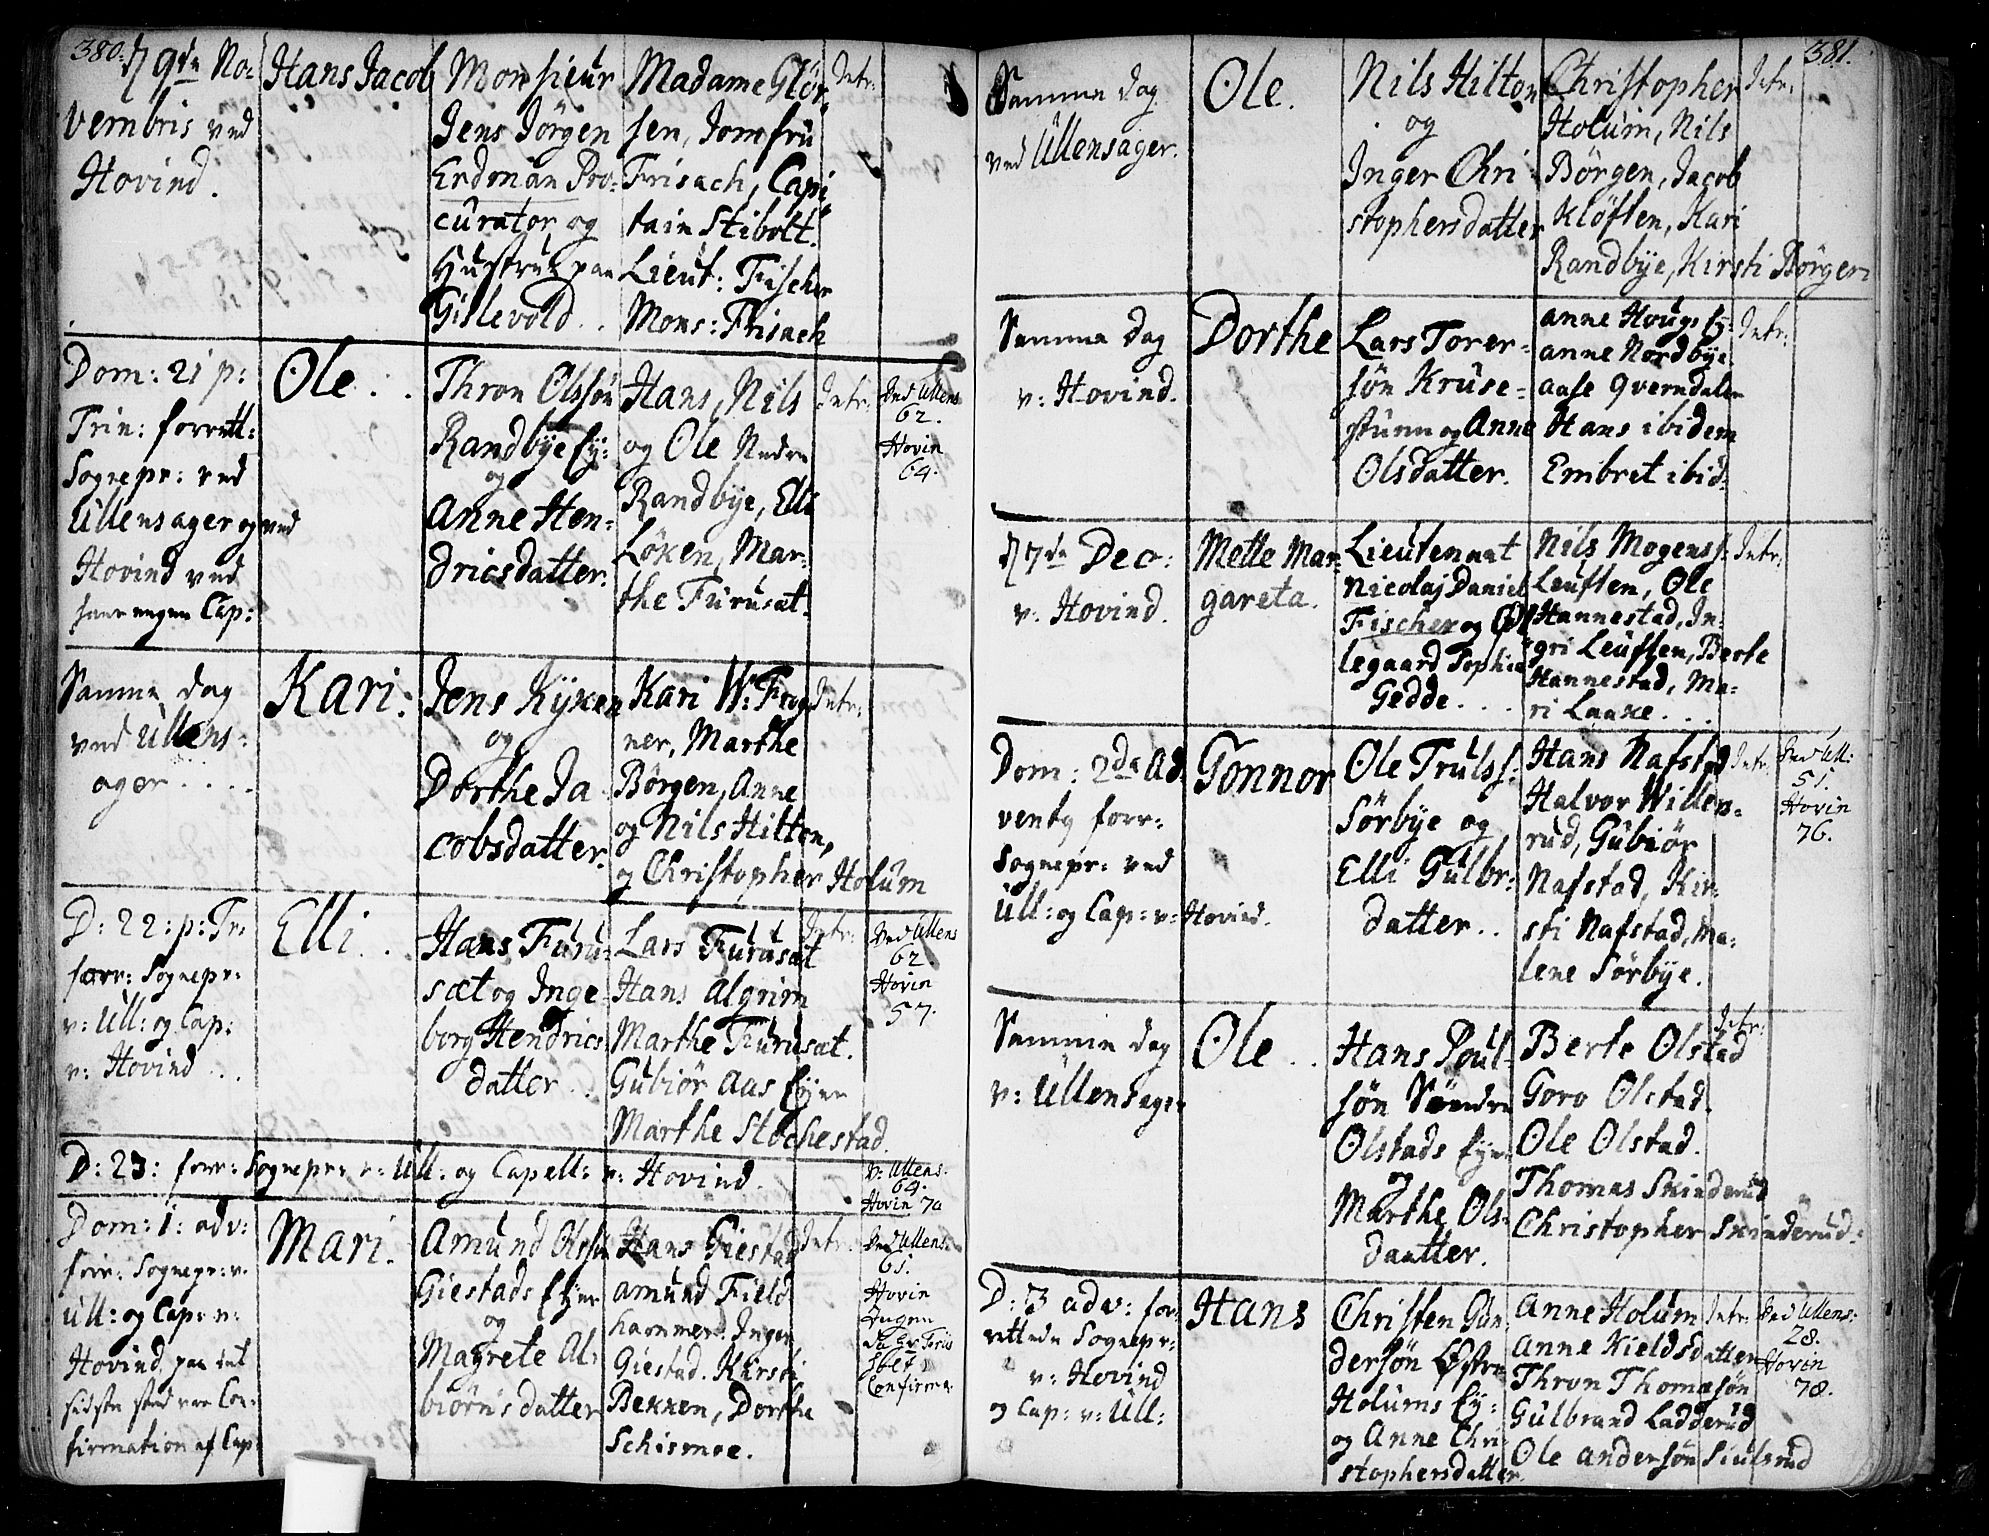 380.
d 9de No-
vembris ved
Hovind.
Hans Jacob
Monsieur
Jens Jörgen
Erdman Pro-
curator og
Hustrue paa
Gislevold..
Madame Glör-
sen, Jomfru
Frisach, Capi-
tain Stibolt.
Lieut: Fischer
Mons: Frisach
Intr:
Dom: 21 p:
Trin: forrett:
Sognepr: ved
Ullensager og ved
Hovind ved
Cap:
Ole..
Thron Olssön
Randbÿe Ey:
og
Anne Hen-
dricsdatter.
Hans, Nils
og Ole Nedre
Randbÿe, Elli
Löken, Mar-
the Furusæt.
Intr:
Ved Ullens
62.
Hovin
64.
Samme dag
ved Ullens-
ager.....
Kari.
Jens Kÿxen
og
Dorthe Ja-
cobsdatter.
Kari W: Frog-
ner, Marthe
Börgen, Anne
og Nils Hilton,
og Christopher Holum
Intr:
D: 22: p: Tr:
forr: Sognepr:
v: Ull: og Cap:
v: Hovind...
Elli..
Hans Furu-
sæt og Inge-
borg Hendrics-
datter..
Lars Furusæt
Hans Algrim
Marthe Furusæt.
Gubiör Aas Eÿer
Marthe Stochestad.
Intr:
Ved Ullens
62.
Hovin
57.
D: 23: forr: Sognepr: v: Ull: og Capell: v: Hovind.
v: Ullens:
64.
Hovin 70
Dom: 1: adv:
forr: Sognepr: v.
Ull: og Cap: v:
Hovind, paa det
sidste sted var Con-
firmation af Cap:
Mari.
Amund Olssön
Giestads Eÿer
og
Magrete Al-
biörnsdatter
Hans Giestad
Amund Field
hammer. Inger
Giestad. Kirsti
Bekken, Dorthe
Schismoe.
Intr:
Ved Ullens:
61.
Hovin
Ingen
da
Confirm:
381.
Samme dag
ved Ullensager.
Ole.
Nils Hilton
og
Inger Chri-
stophersdatter
Christopher
Holum, Nils
Börgen, Jacob
Klöften, Kari
Randbÿe, Kirsti Börgen
Intr:
Samme dag
v: Hovind.
Dorthe
Lars Torer-
søn Kruse-
stuen og Anne
Olsdatter.
Anne Hougs Eÿ:
Anne Nordbÿe
Aase Qverndalen
Hans ibidem
Embret ibid:
Intr:
d 7de Dec:
v: Hovind.
Mette Mar-
gareta.
Lieutenant
Nicolaj Daniel
Fischer og Øl-
legaard Sophia
Gedde...
Nils Mogenss:
Leuften, Ole
Hannestad, In-
gri Leuften, Berte
Hannestad, Ma-
ri Laaxe...
Intr:
Dom: 2de Ad-
venty forr:
Sognepr: ved
Ull: og Cap: v: Hovind.
Gonnor
Ole Trulss:
Sörbÿe og
Elli Gulbr:
datter..
Hans Nafstad
Halvor Willen-
rud, Gubiör
Nafstad, Kir-
sti Nafstad, Ma-
lene Sörbÿe.
Intr:
Ved Ull:
51.
Hovin
76.
Samme dag
v: Ullensager
Ole..
Hans Poul-
søn Søndre
Olstads Eÿer
og
Marthe Ols-
daatter.
Berte Olstad
Goro Olstad.
Ole Olstad.
Thomas Skinderud
Christopher Skinderud.
Intr:
D: 3 adv: for-
rettede Sognepr:
v: Hovind
og Cap: v: Ull:
Hans
Christen Gun-
dersøn Østre
Holums Eÿ:
og Anne Chri-
stophersdatter.
Anne Holum
Anne Kieldsdatter
Thron Thomæsøn
Gulbrand Ladderud
Ole Andersøn Siulsrud
Intr:
Ved Ullens:
28.
Hovin
78.